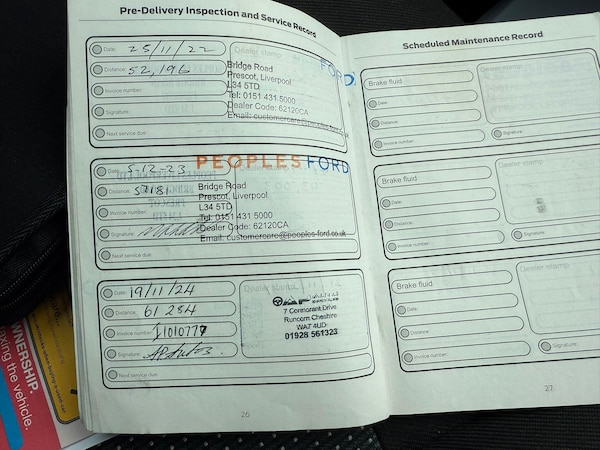 Pre-Delivery Inspection and Service Record
Date: 25/11/22
Distance: 52,196
Invoice number:
Signature:
Next service due:
Dealer stamp
FORD
Bridge Road
Prescot, Liverpool
L34 5TD
Tel: 0151 431 5000
Dealer Code: 62120CA
Email: customercare@peoples-ford.co.uk
Date: 5-12-23
Distance: 57181
Invoice number:
Signature:
Next service due:
PEOPLES FORD
Bridge Road
Prescot, Liverpool
L34 5TD
Tel: 0151 431 5000
Dealer Code: 62120CA
Email: customercare@peoples-ford.co.uk
Date: 19/11/24
Distance: 61 284
Invoice number: I1010777
Signature: AP Autos.
Next service due:
Dealer stamp
7 Cormorant Drive
Runcorn Cheshire
WA7 4UD
01928 561323
26
Scheduled Maintenance Record
Brake fluid
Date:
Distance:
Invoice number:
Dealer stamp
Signature:
Brake fluid
Date:
Distance:
Invoice number:
Dealer stamp
Signature:
Brake fluid
Date:
Distance:
Invoice number:
Dealer stamp
Signature:
27
WNERSHIP.
axing the vehicle.